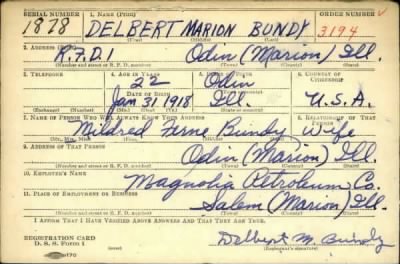 SERIAL NUMBER 1. NAME (Print) ORDER NUMBER
1828 DELBERT MARION BUNDY 3194
(First) (Middle) (Last)
2. ADDRESS (Print)
R.F.D. 1 Odin (Marion) Ill.
(Number and street or R. F. D. number) (Town) (County) (State)
3. TELEPHONE 4. AGE IN YEARS 5. PLACE OF BIRTH 6. COUNTRY OF CITIZENSHIP
22 Odin
DATE OF BIRTH
Jan 31 1918 Ill. U.S.A.
(Exchange) (Number) (Mo.) (Day) (Yr.) (State or country)
7. NAME OF PERSON WHO WILL ALWAYS KNOW YOUR ADDRESS 8. RELATIONSHIP OF THAT PERSON
Mildred Ferne Bundy Wife
(Mr., Mrs., Miss) (First) (Middle) (Last)
9. ADDRESS OF THAT PERSON
Odin (Marion) Ill.
(Number and street or R. F. D. number) (Town) (County) (State)
10. EMPLOYER'S NAME
Magnolia Petroleum Co.
11. PLACE OF EMPLOYMENT OR BUSINESS
Salem (Marion) Ill.
(Number and street or R. F. D. number) (Town) (County) (State)
I AFFIRM THAT I HAVE VERIFIED ABOVE ANSWERS AND THAT THEY ARE TRUE.
REGISTRATION CARD
D. S. S. Form 1 Delbert M Bundy
(Registrant's signature)